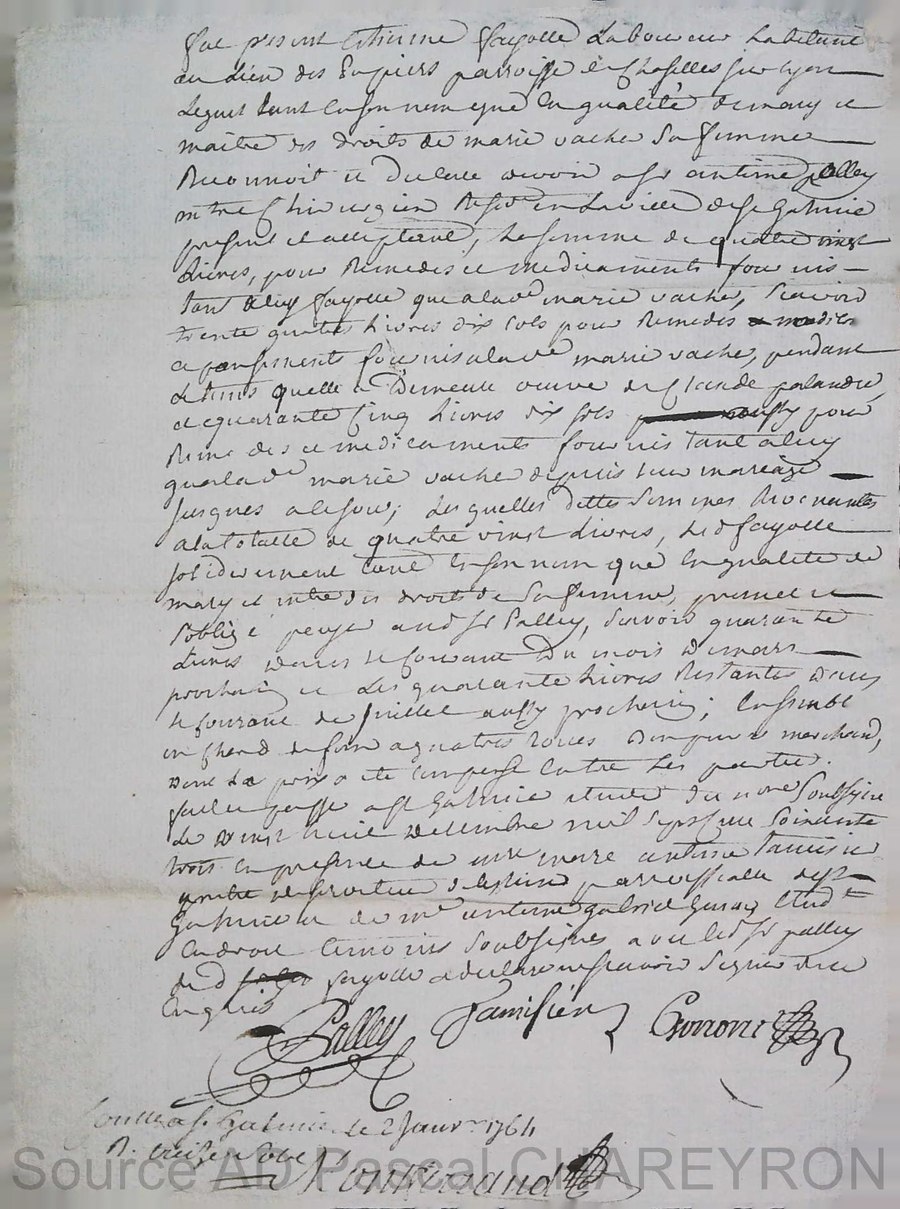 fut present Etienne fayolle Laboureur habitant
au lieu des Enpiers parroisse de Chaselles sur Lyon
Lequel tant en son nom que en qualité de mary et
maitre des droits de marie vache sa femme
Reconnoit et declare devoir a sr antoine palley
mtre Chirurgien Resdt en la ville de st Galmier
present et acceptant, La somme de quatre vingt
Livres, pour Remedes et medicaments fournis
tant a luy fayolle que a lade marie vache, scavoir
trente quatre Livres dix sols pour Remedes
et pansements fournis a lade marie vache, pendant
Le tems quelle a Demeuré veuve de Claude palandre,
et quarante Cinq Livres dix sols pour
Remedes et medicaments fournis tant a luy
qua lade marie vache depuis leur mariage
jusques a ce jour; Les quelles dittes sommes Revenantes
a la totalle de quatre vingt Livres, Led fayolle
solidairement tant en son nom que en qualité de
mary et mtre des droits de sa femme, promet et
s'oblige payer aud sr palley, scavoir quarante
Livres dans le courant Du mois de mars
prochain et Les quarante Livres Restantes dans
le courant de juillet aussy prochain; Ensemble
un Chard de foin a quatre Roues bon pur et marchand,
dont Le prix a ete compensé entre Les parties.
fait et passé a st Galmier etude du nore soubsigné
Le vingt huit decembre mil sept cent soixante
trois En presence de mre antoine tamisier
pretre parroissialle de st
Galmier et de mre antoine gabriel Gonon Etudt
En droit temoins soubsignés avec led sr palley
Led fayolle a declaré ne scavoir signer de ce
Enquis
Palley Tamisier Gonon
Controllé a st Galmier le 2 Janvr 1764
R. treize sols
Montermand
Source AD Pascal CHAREYRON